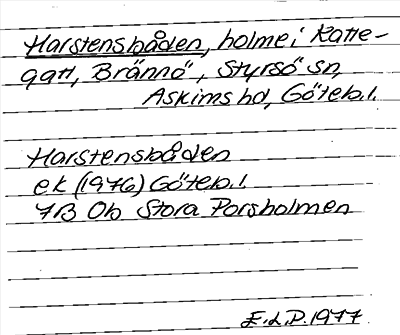 Harstensbåden, holme i Katte-
gatt, Brännö, Styrsö sn,
Askims hd, Göteb.l.
Harstensbåden
ek (1976) Göteb.l.
7B 0b Stora Porsholmen
E.L.P. 1977